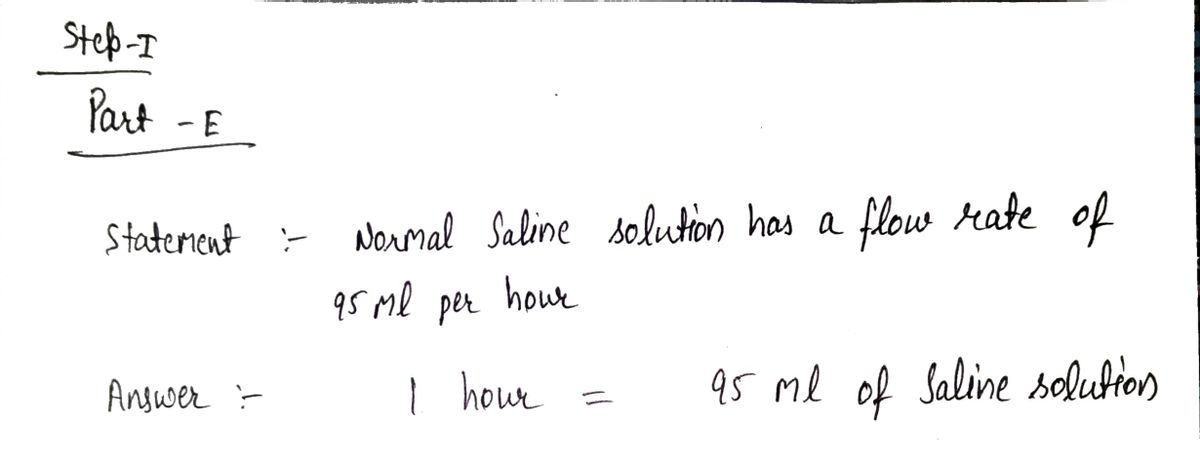 Step-I
Part - E
Statement :- Normal Saline solution has a flow rate of
95 ml per hour
Answer :- 1 hour = 95 ml of Saline solution